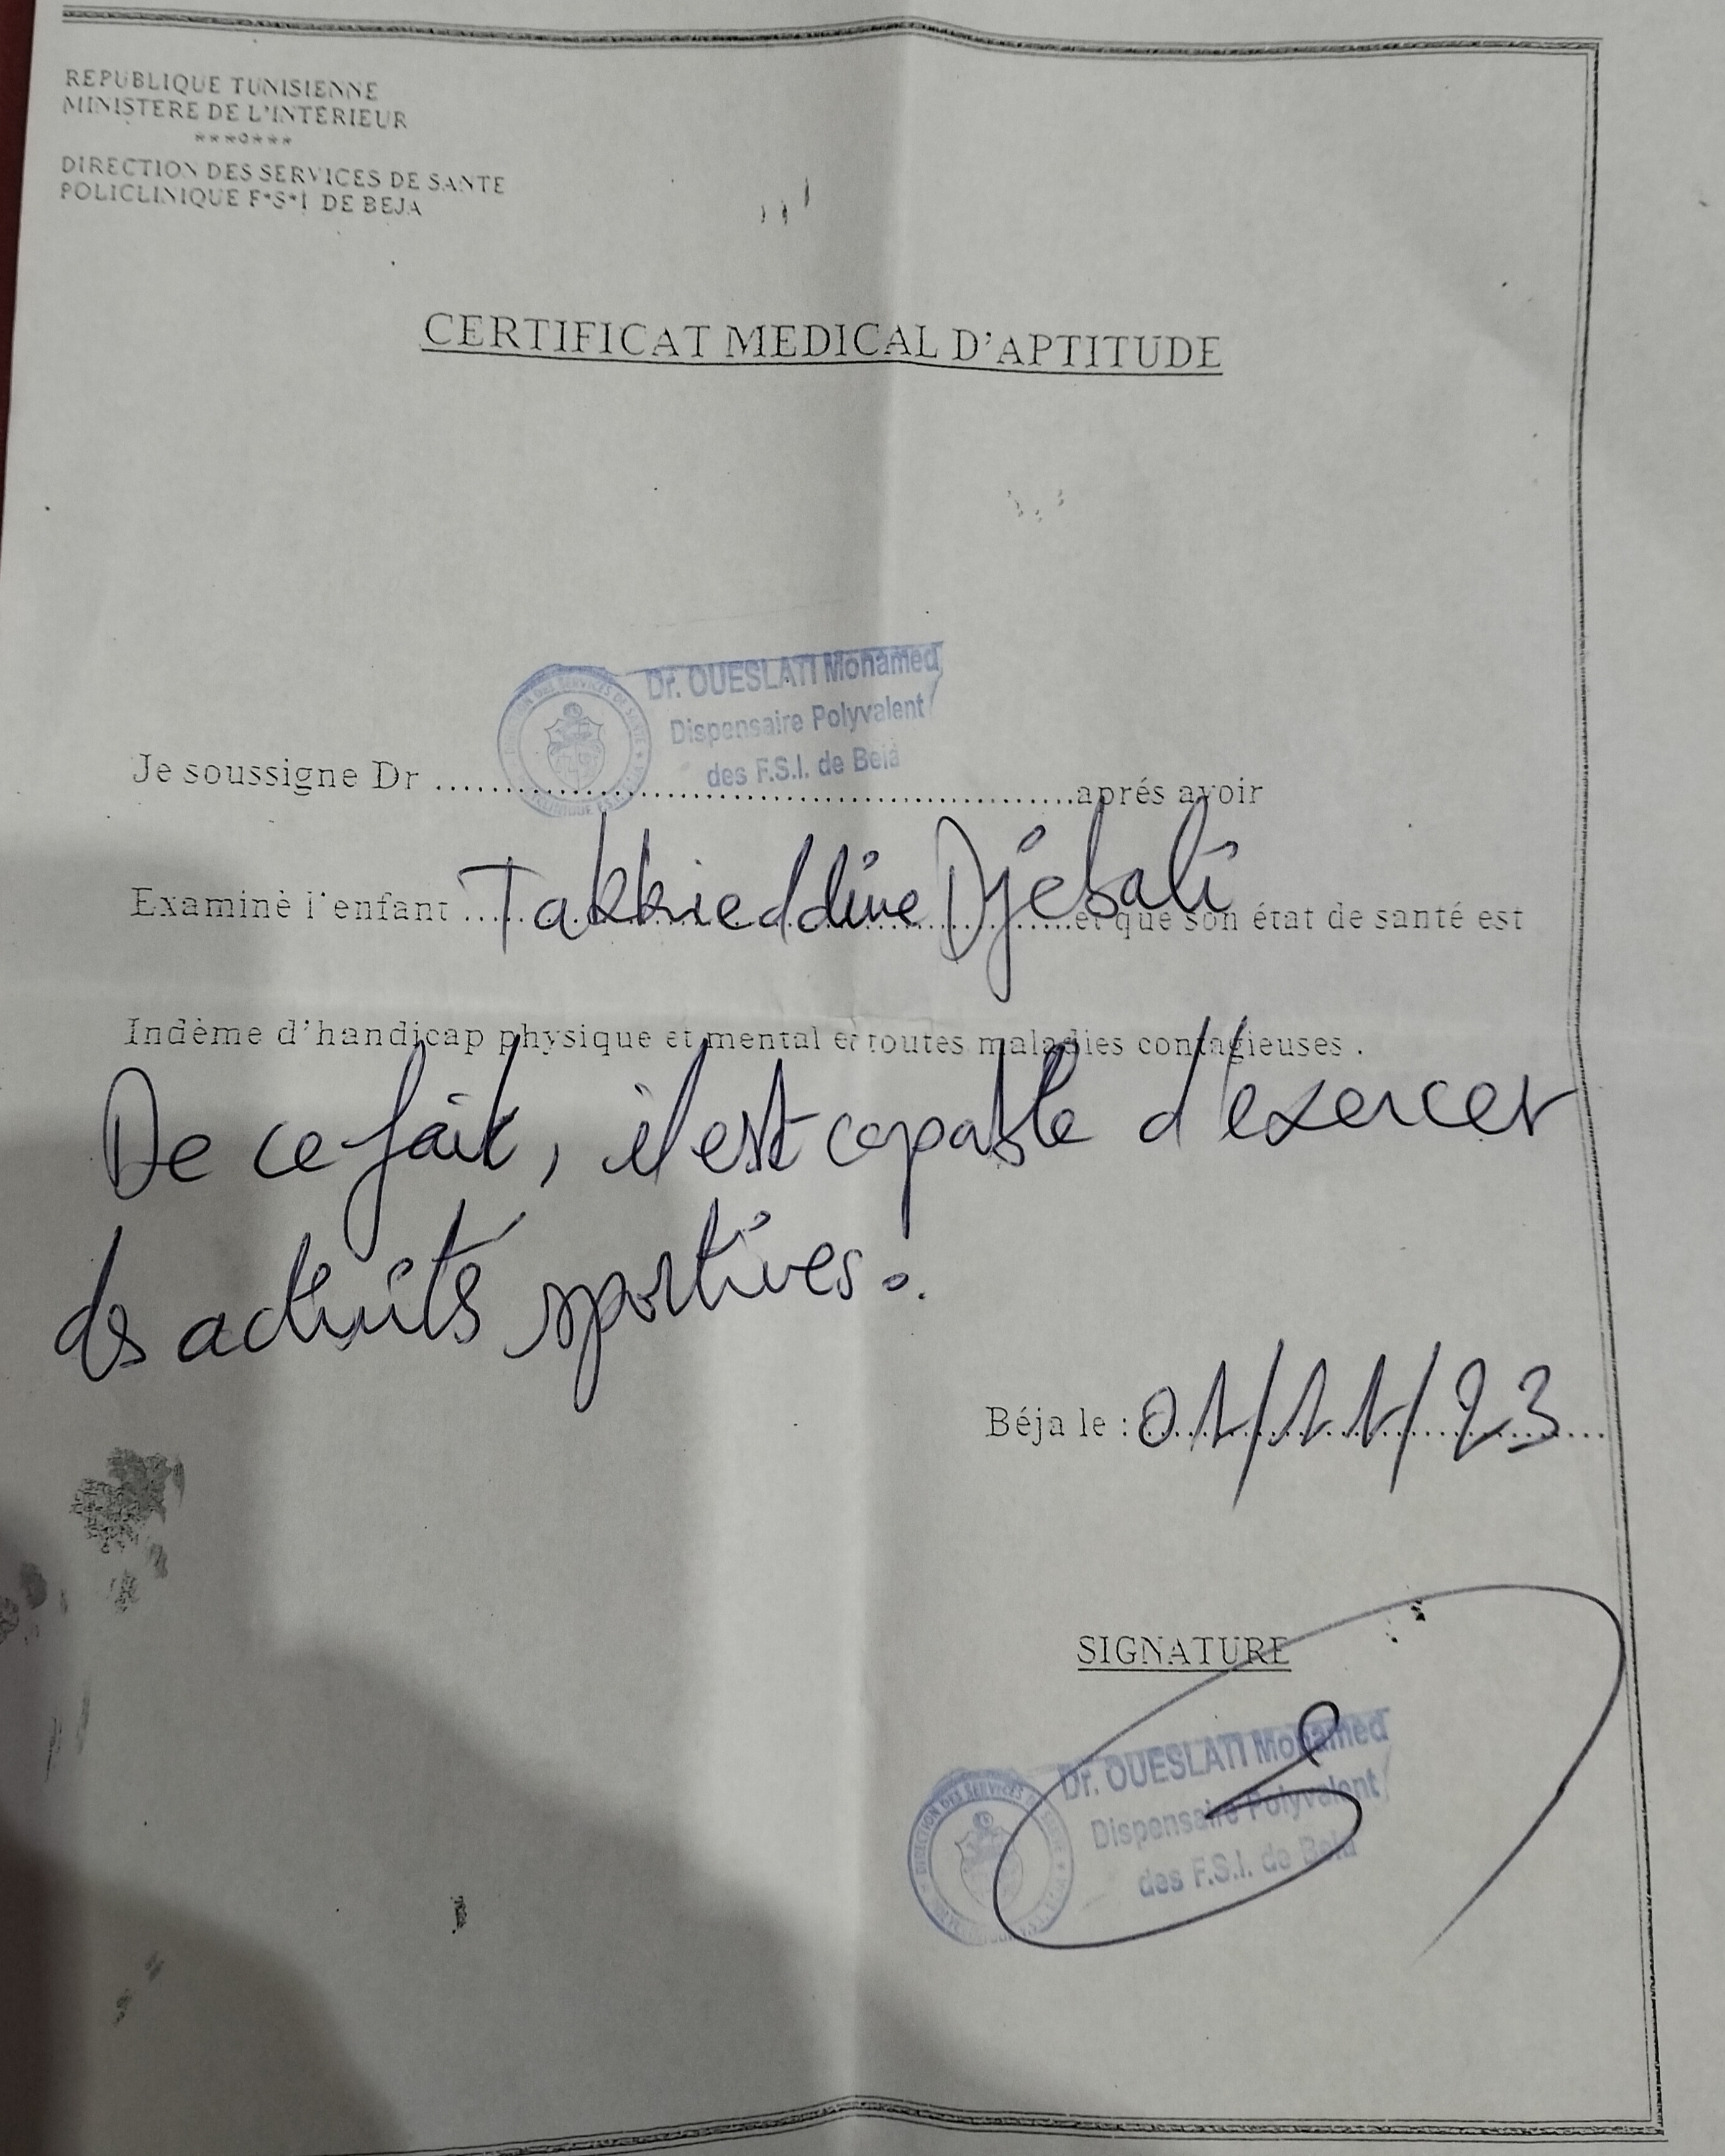 REPUBLIQUE TUNISIENNE
MINISTERE DE L'INTERIEUR
***o***
DIRECTION DES SERVICES DE SANTE
POLICLINIQUE F*S*I DE BEJA
CERTIFICAT MEDICAL D'APTITUDE
Dr. OUESLATI Mohamed
Dispensaire Polyvalent
des F.S.I. de Beja
Je soussigne Dr ........ aprés avoir
Examiné l'enfant Takkieddine Djebali et que son état de santé est
Indéme d'handicap physique et mental et toutes maladies contagieuses .
De ce fait, il est capable d'exercer
des activités sportives.
Béja le : 01/11/23
SIGNATURE
Dr. OUESLATI Mohamed
Dispensaire Polyvalent
des F.S.I. de Beja
DIRECTION DES SERVICES DE SANTE